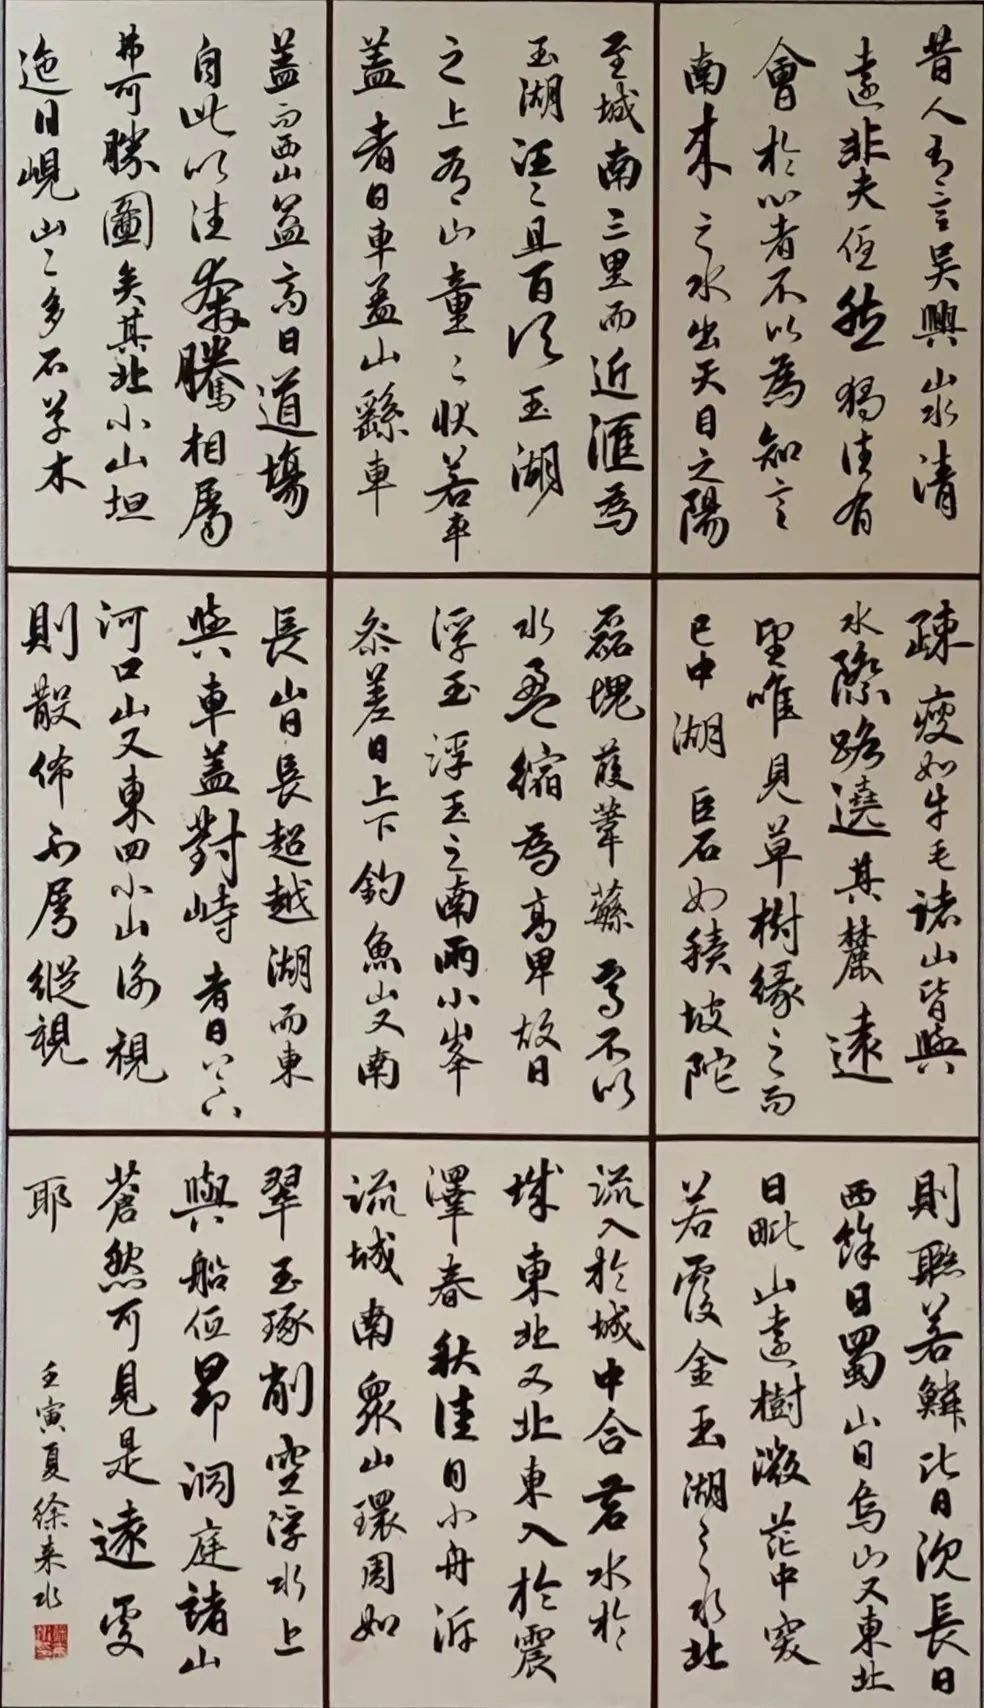 昔人有言吴興山水清
遠非夫任然獨往有
會於心者不以為知言
南来之水出天目之陽
至城南三里而近滙為
玉湖汪〻且百頃玉湖
之上有山童〻状若車
盖者曰車盖山繇車
盖而西山益高曰道塲
自此以往奔騰相屬
弗可勝圖矣其北小山坦
迤曰峴山〻多石草木
疎瘦如牛毛諸山皆與
水際路遶其麓遠
望唯見草樹緣之而
已中湖巨石如積坡陀
磊塊葭葦蘇焉不以
水盈縮為高卑故曰
浮玉浮玉之南兩小峯
参差曰上下釣魚山又南
長山曰長超越湖而東
與車盖對峙者曰上下
河口山又東四小山衡視
則散佈不屬縱視
則聯若鱗比曰沈長曰
西餘曰蜀山曰烏山又東北
曰毗山遠樹微茫中突
若覆釜玉湖之水北
流入於城中合苕水於
城東北又北東入於震
澤春秋佳日小舟泝
流城南衆山環周如
翠玉琢削空浮水上
與船低昂洞庭諸山
蒼然可見是遠處
耶
壬寅夏徐来水